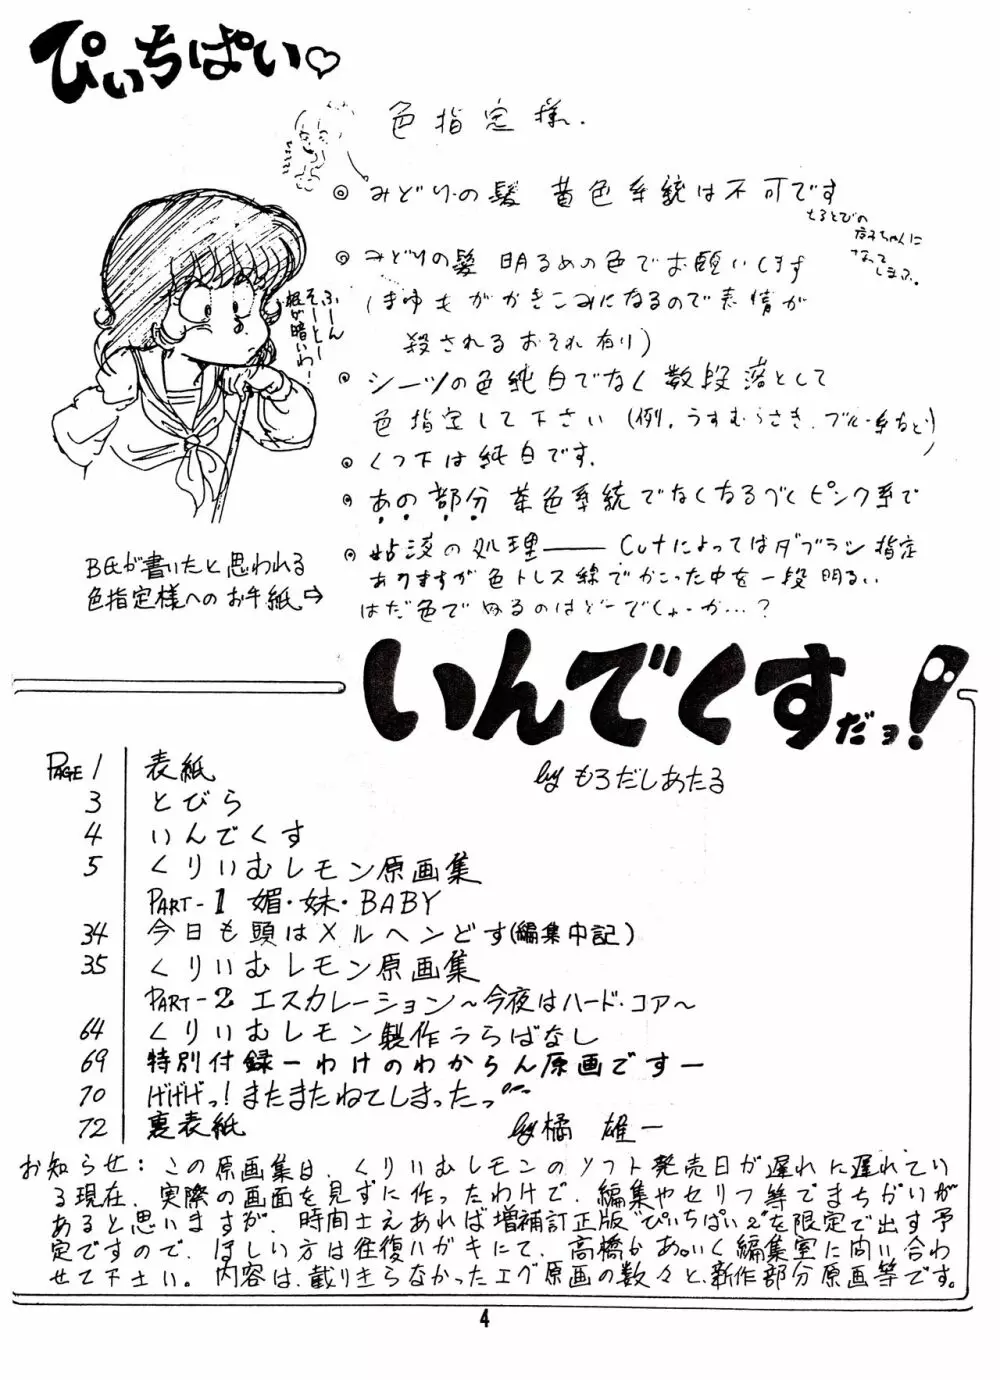 ぴいちぱい♡
色指定様.
◎みどりの髪 黄色系統は不可です
なって
しまふ。
◎みどりの髪 明るめの色でお願いします
(まゆもがかきこみになるので表情が
殺されるおそれ有り)
◎シーツの色純白でなく数段落として
色指定して下さい(例.うすむらさき.ブルー系など)
◎くつ下は純白です.
◎あの部分 茶色系統でなくなるべくピンク系で
◎粘液の処理―― Cutによってはダブラシ指定
ありますが色トレス線でかこった中を一段明るい
はだ色でぬるのはどーでしょーか…?
ふーん
そーとー
根が暗いわー
B氏が書いたと思われる
色指定様へのお手紙⇨
いんでくすだョ!
by もろだしあたる
PAGE 1 表紙
3 とびら
4 いんでくす
5 くりいむレモン原画集
PART-1 媚・妹・BABY
34 今日も頭はメルヘンどす(編集中記)
35 くりいむレモン原画集
PART-2 エスカレーション～今夜はハード・コア～
64 くりいむレモン製作うらばなし
69 特別付録ーわけのわからん原画ですー
70 げげげっ!またまたねてしまったっ
72 裏表紙
by 橘 雄一
お知らせ:この原画集は、くりいむレモンのソフト発売日が遅れに遅れてい
る現在、実際の画面を見ずに作ったわけで、編集やセリフ等でまちがいが
あると思いますが、時間さえあれば増補訂正版"ぴいちぱい2"を限定で出す予
定ですので、ほしい方は往復ハガキにて、高橋かあいく編集室に問い合わ
せて下さい。内容は、載りきらなかったエグ原画の数々と、新作部分原画等です。
4